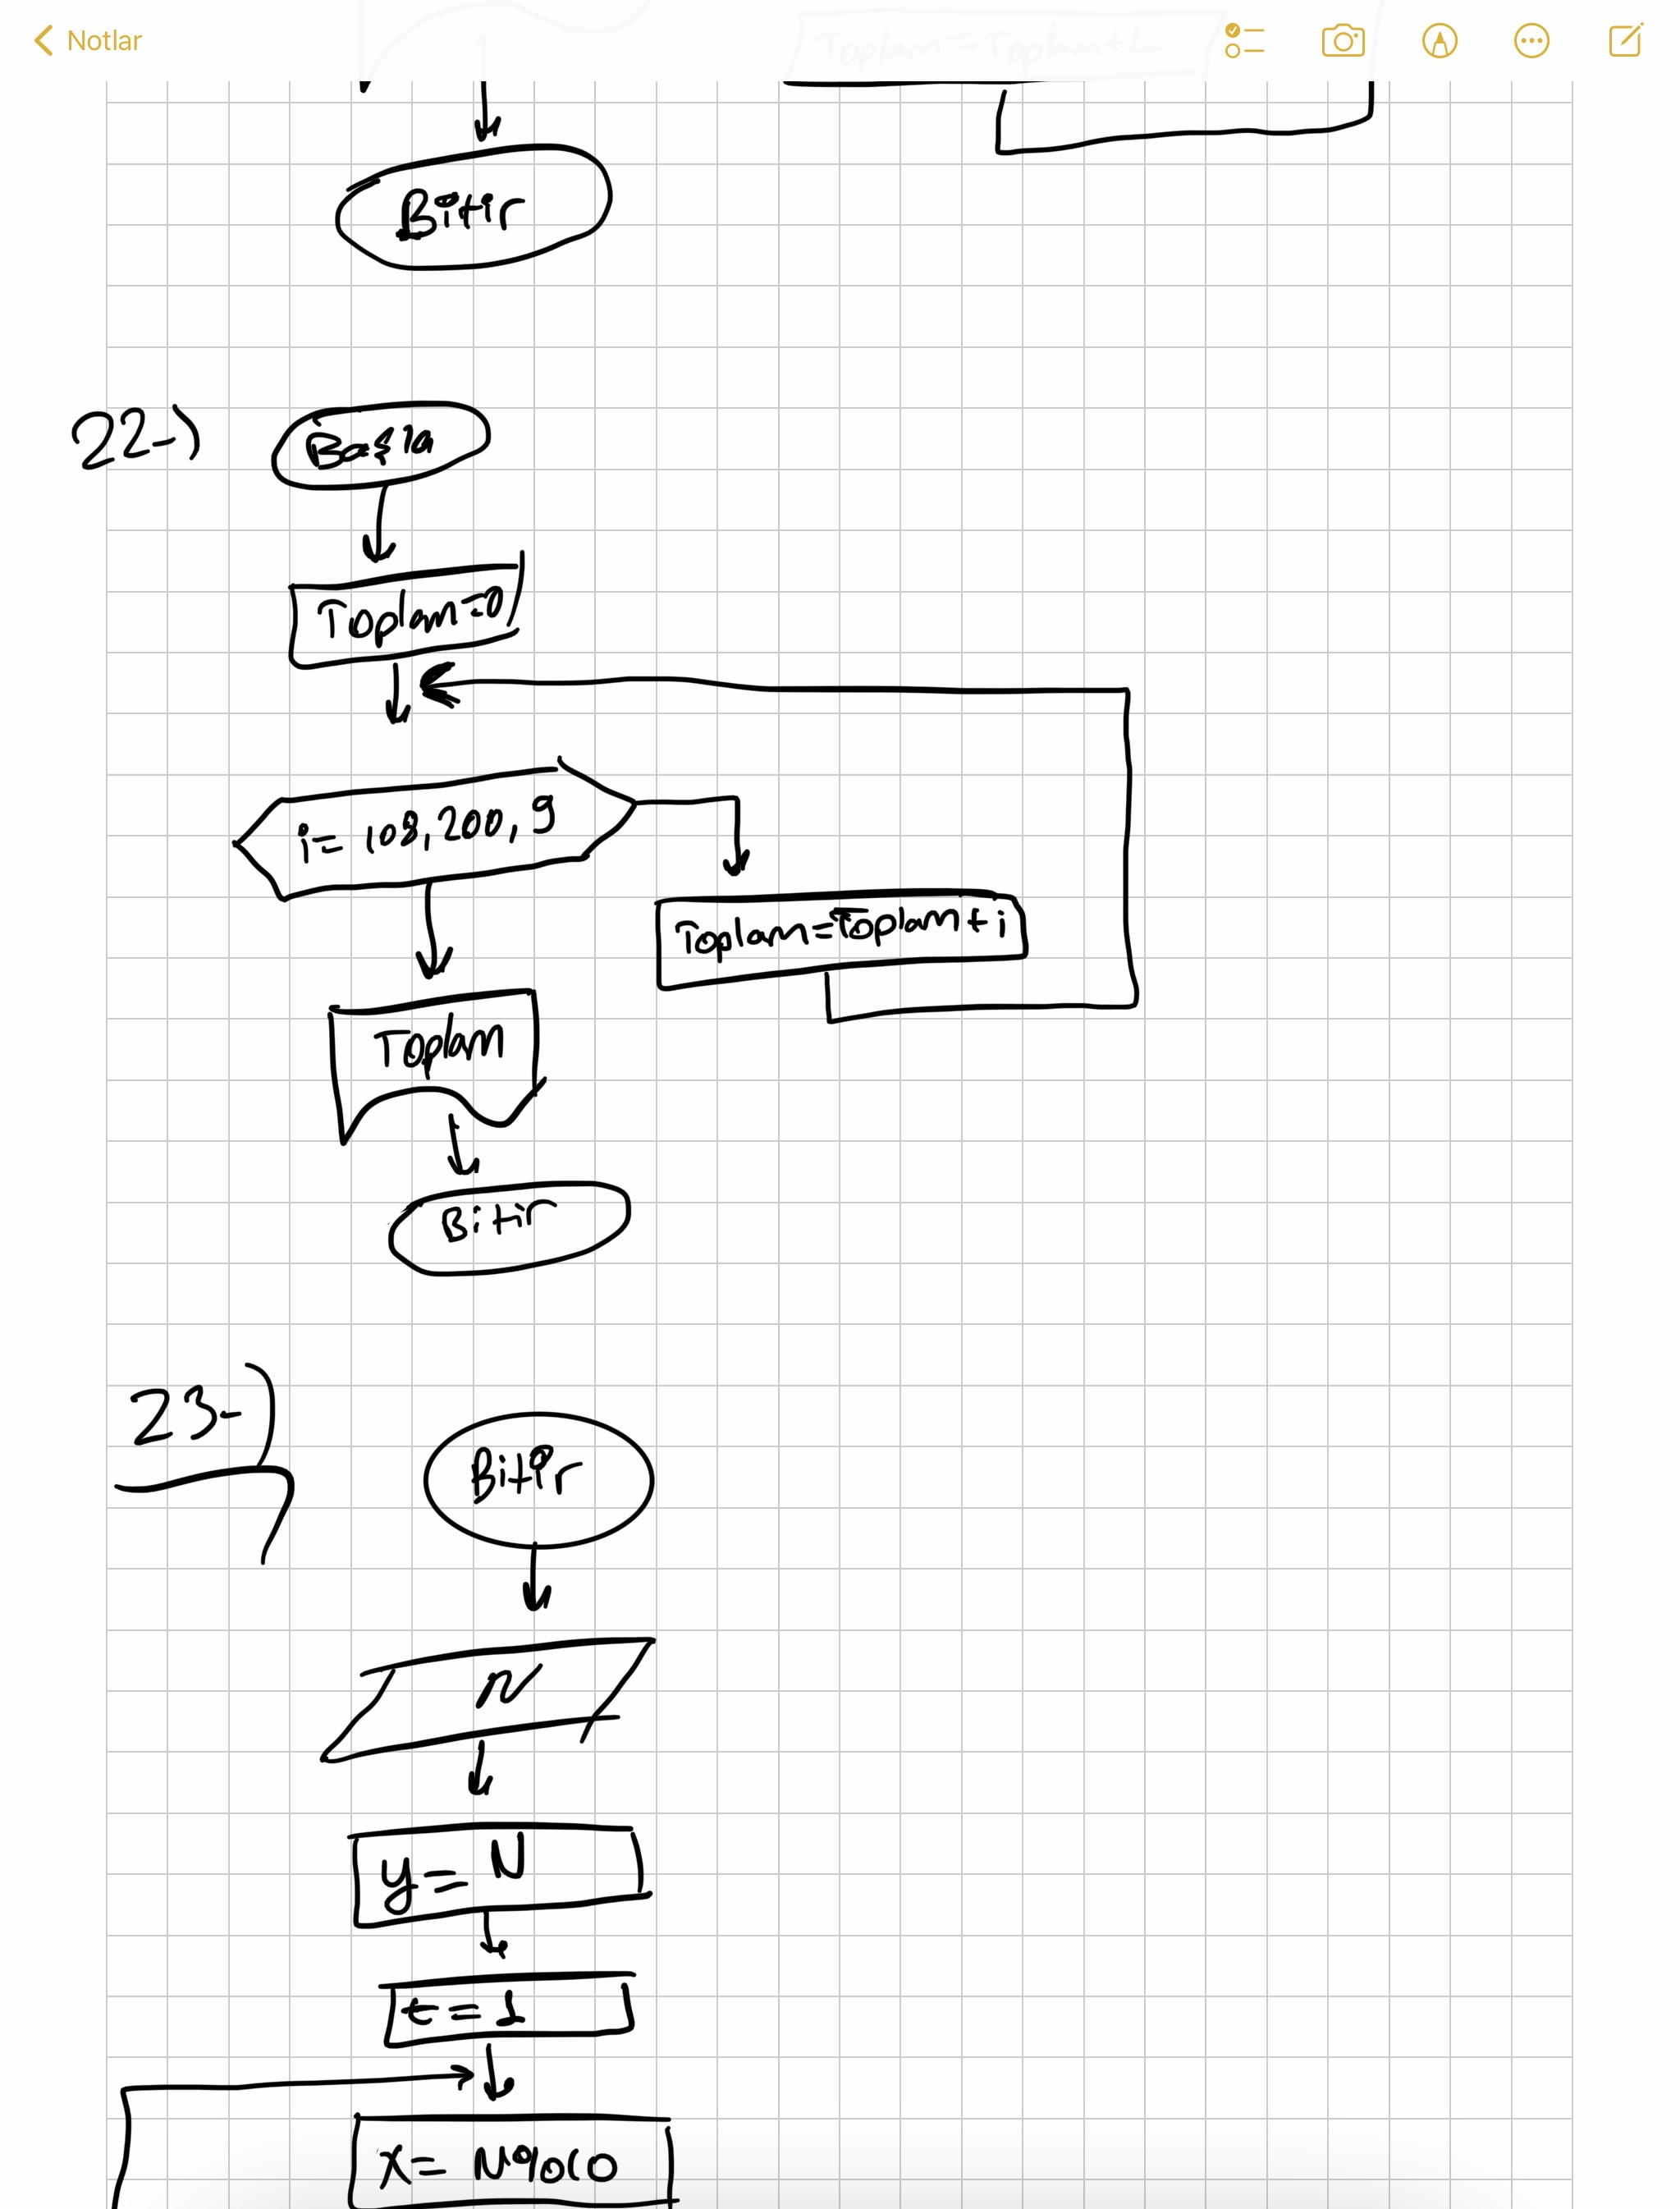 Notlar
Toplam=Toplam+L
Bitir
22-)
Başla
Toplam=0
i= 108,200,9
Toplam=Toplam+i
Toplam
Bitir
23-)
Bitir
N
y= N
t=1
X= N%10